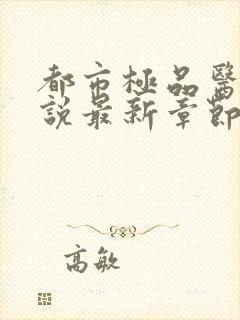 都市極品醫
說最新章節
高敏